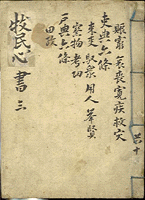 牧民心書 三
賑窮 哀喪 寬疾 救災
吏典六條
束吏 馭衆 用人 擧賢
察物 考功
戶典六條
田政